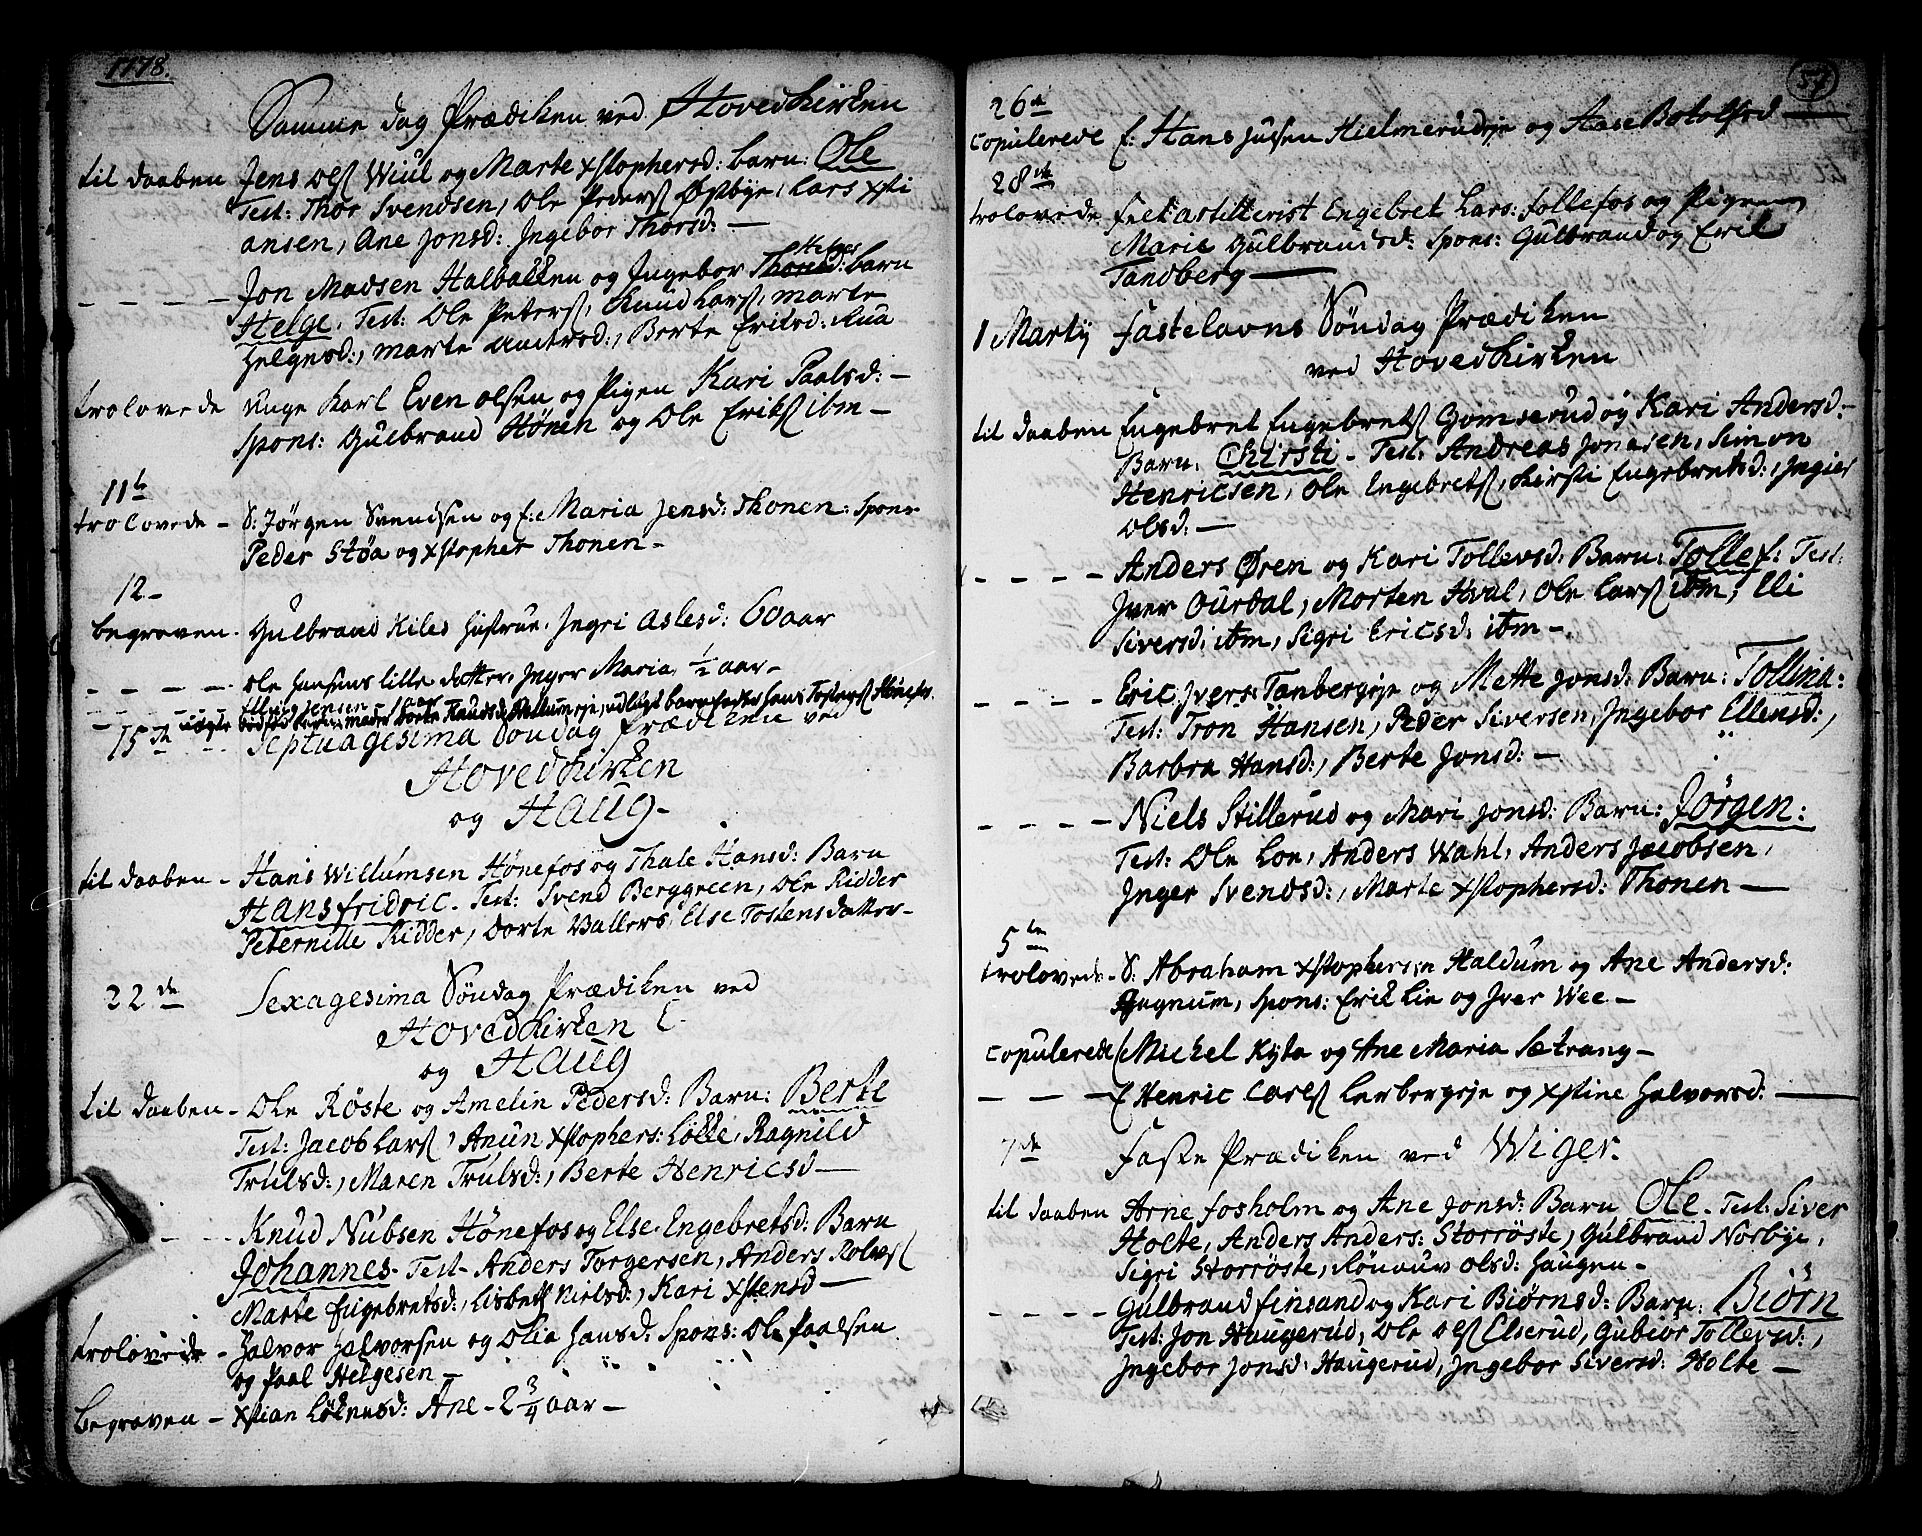 1778.
Samme dag Prædiken ved Hovedkirken
til daaben Jens Ols Wiul og Marte xstophersd: barn: Ole
Test: Thor Svendsen, Ole Peders Østbye, Lars xsti
ansen, Ane Jonsd: Ingebor Thorsd: —
Helges
- - - - Jon Madsen Halbakken og Ingebor d: barn
Helge. Test: Ole Peters, Knud Lars, Marte
Helgesd:, Marte, Berte Eriksd: Rua
trolovede unge Karl Even Olsen og Pigen Kari Paalsd: —
Spons: Gulbrand Hønen og Ole Eriks ibm —
11te
trolovede — S: Jørgen Svendsen og f: Maria Jensd: Thonen: Spons
Peder Støa og xstopher Thonen —
12 —
begraven. Gulbrand Kiles Hustrue. Ingri Aslesd: 60 aar
- - - - Ole Hansens lille datter, Inger Maria, ½ aar —
15de Septuagesima Søndag Prædikene ved
Hovedkirken
og Haug —
til daaben — Hans Willumsen Hønefos og Thale Hansd: Barn
Hans fridric. Test: Svend Berggreen, Ole Ridder
Peternille Ridder, Dorte Vallers, Else Tostensdatter —
22de Sexagesima Søndag Prædiken ved
Hovedkirken
og Haug
til daaben — Ole Røste og Amelin Pedersd: Barn: Berte
Test: Jacob Lars, Anun xstophers: Løkke, Ragnild
Trulsd:, Maren Trulsd:, Berte Henricsd —
- - - Knud Nubsen Hønefos og Else Engebretsd: Barn
Johannes. Test — Anders Torgersen, Anders Rolvs
Marte Engebretsd:, Lisbeth Nielsd:, Kari xstensd —
trolovede — Halvor Halvorsen og Olia Hansd: Spons: Ole Paalsen
og Paal Helgesen —
begraven — xstian Løknesd: Ane — 2 ¾ aar —
57
26de
copulerede f: Hans Julsen Hielmerudeje og Aase Botolfsd —
28de
trolovede feltartillerist Engebret Lars: follefos og Pigen
Marie Gulbrandsd: Spons: Gulbrand og Erik
Tandberg —
1 Martij Fastelavns Søndag Prædiken
ved Hovedkirken
til daaben Engebret Engebrets Gomserud og Kari Andersd: —
Barn: Chirsti — Test: Andreas Jonasen, Simon
Henricsen, Ole Engebrets, Kirsti Engebretsd:, Ingier
Olsd: —
- - - - Anders Øren og Kari Tollevsd: Barn: Tollef: Test:
Iver Ourdal, Morten Hval, Ole Lars ibm, Eli
Siversd: ibm, Sigri Ericsd: ibm —
- - - - Eric Ivers: Tanbergeje og Mette Jonsd: Barn: Tollina:
Test: Tron Hansen, Peder Siversen, Ingebor Ellensd:,
Barbra Hansd:, Berte Jonsd: —
- - - - Niels Stillerud og Mari Jonsd: Barn: Jørgen:
Test: Ole Loe, Anders Wahl, Anders Jacobsen,
Inger Svendsd:, Marte xstophersd: Thonen —
5te
trolovede — S: Abraham xstophersen Haldum og Ane Andersd:
Gagnum, Spons: Erik Lie og Iver Wee —
copulerede f Mickel Kyta og Ane Maria Sætrang —
- - - f Henric Carls Lerbergeje og xstine Halvorsd: —
7de Faste Prædiken ved Wiger.
til daaben Arne fosholm og Ane Jonsd: Barn Ole — Test: Siver
Holte, Anders Anders: Storrøste, Gulbrand Norbye,
Sigri Storrøste, Rønnuv Olsd: Haugen —
- - - - Gulbrand finsand og Kari Biørnsd: Barn: Biørn
Test: Jon Haugerud, Ole Ols Elserud, Gubiør Tollevsd:,
Ingebor Jonsd: Haugerud, Ingebor Siversd: Holte —